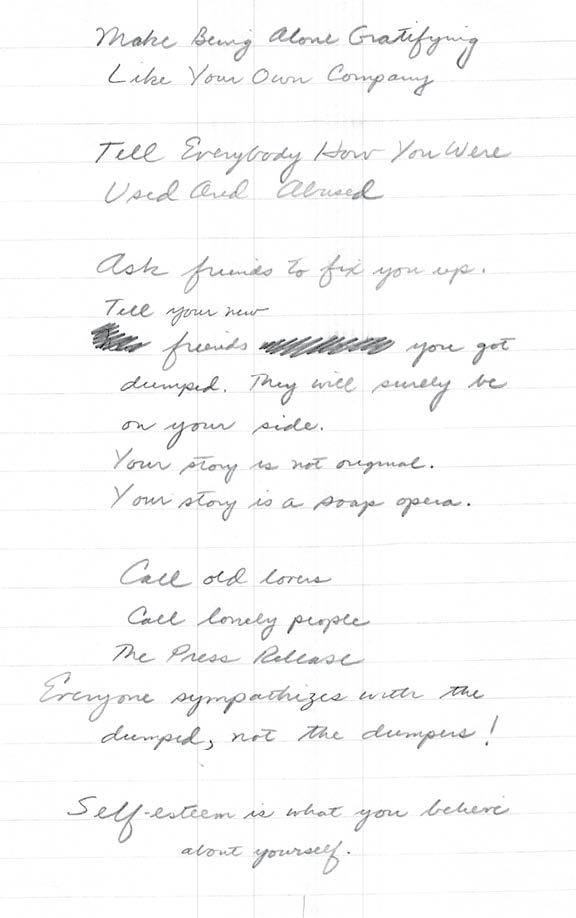 Make Being Alone Gratifying
Like Your Own Company
Tell Everybody How You Were
Used And Abused
Ask friends to fix you up.
Tell your new
friends you got
dumped. They will surely be
on your side.
Your story is not original.
Your story is a soap opera.
Call old lovers
Call lonely people
The Press Release
Everyone sympathizes with the
dumped, not the dumpers!
Self-esteem is what you believe
about yourself.